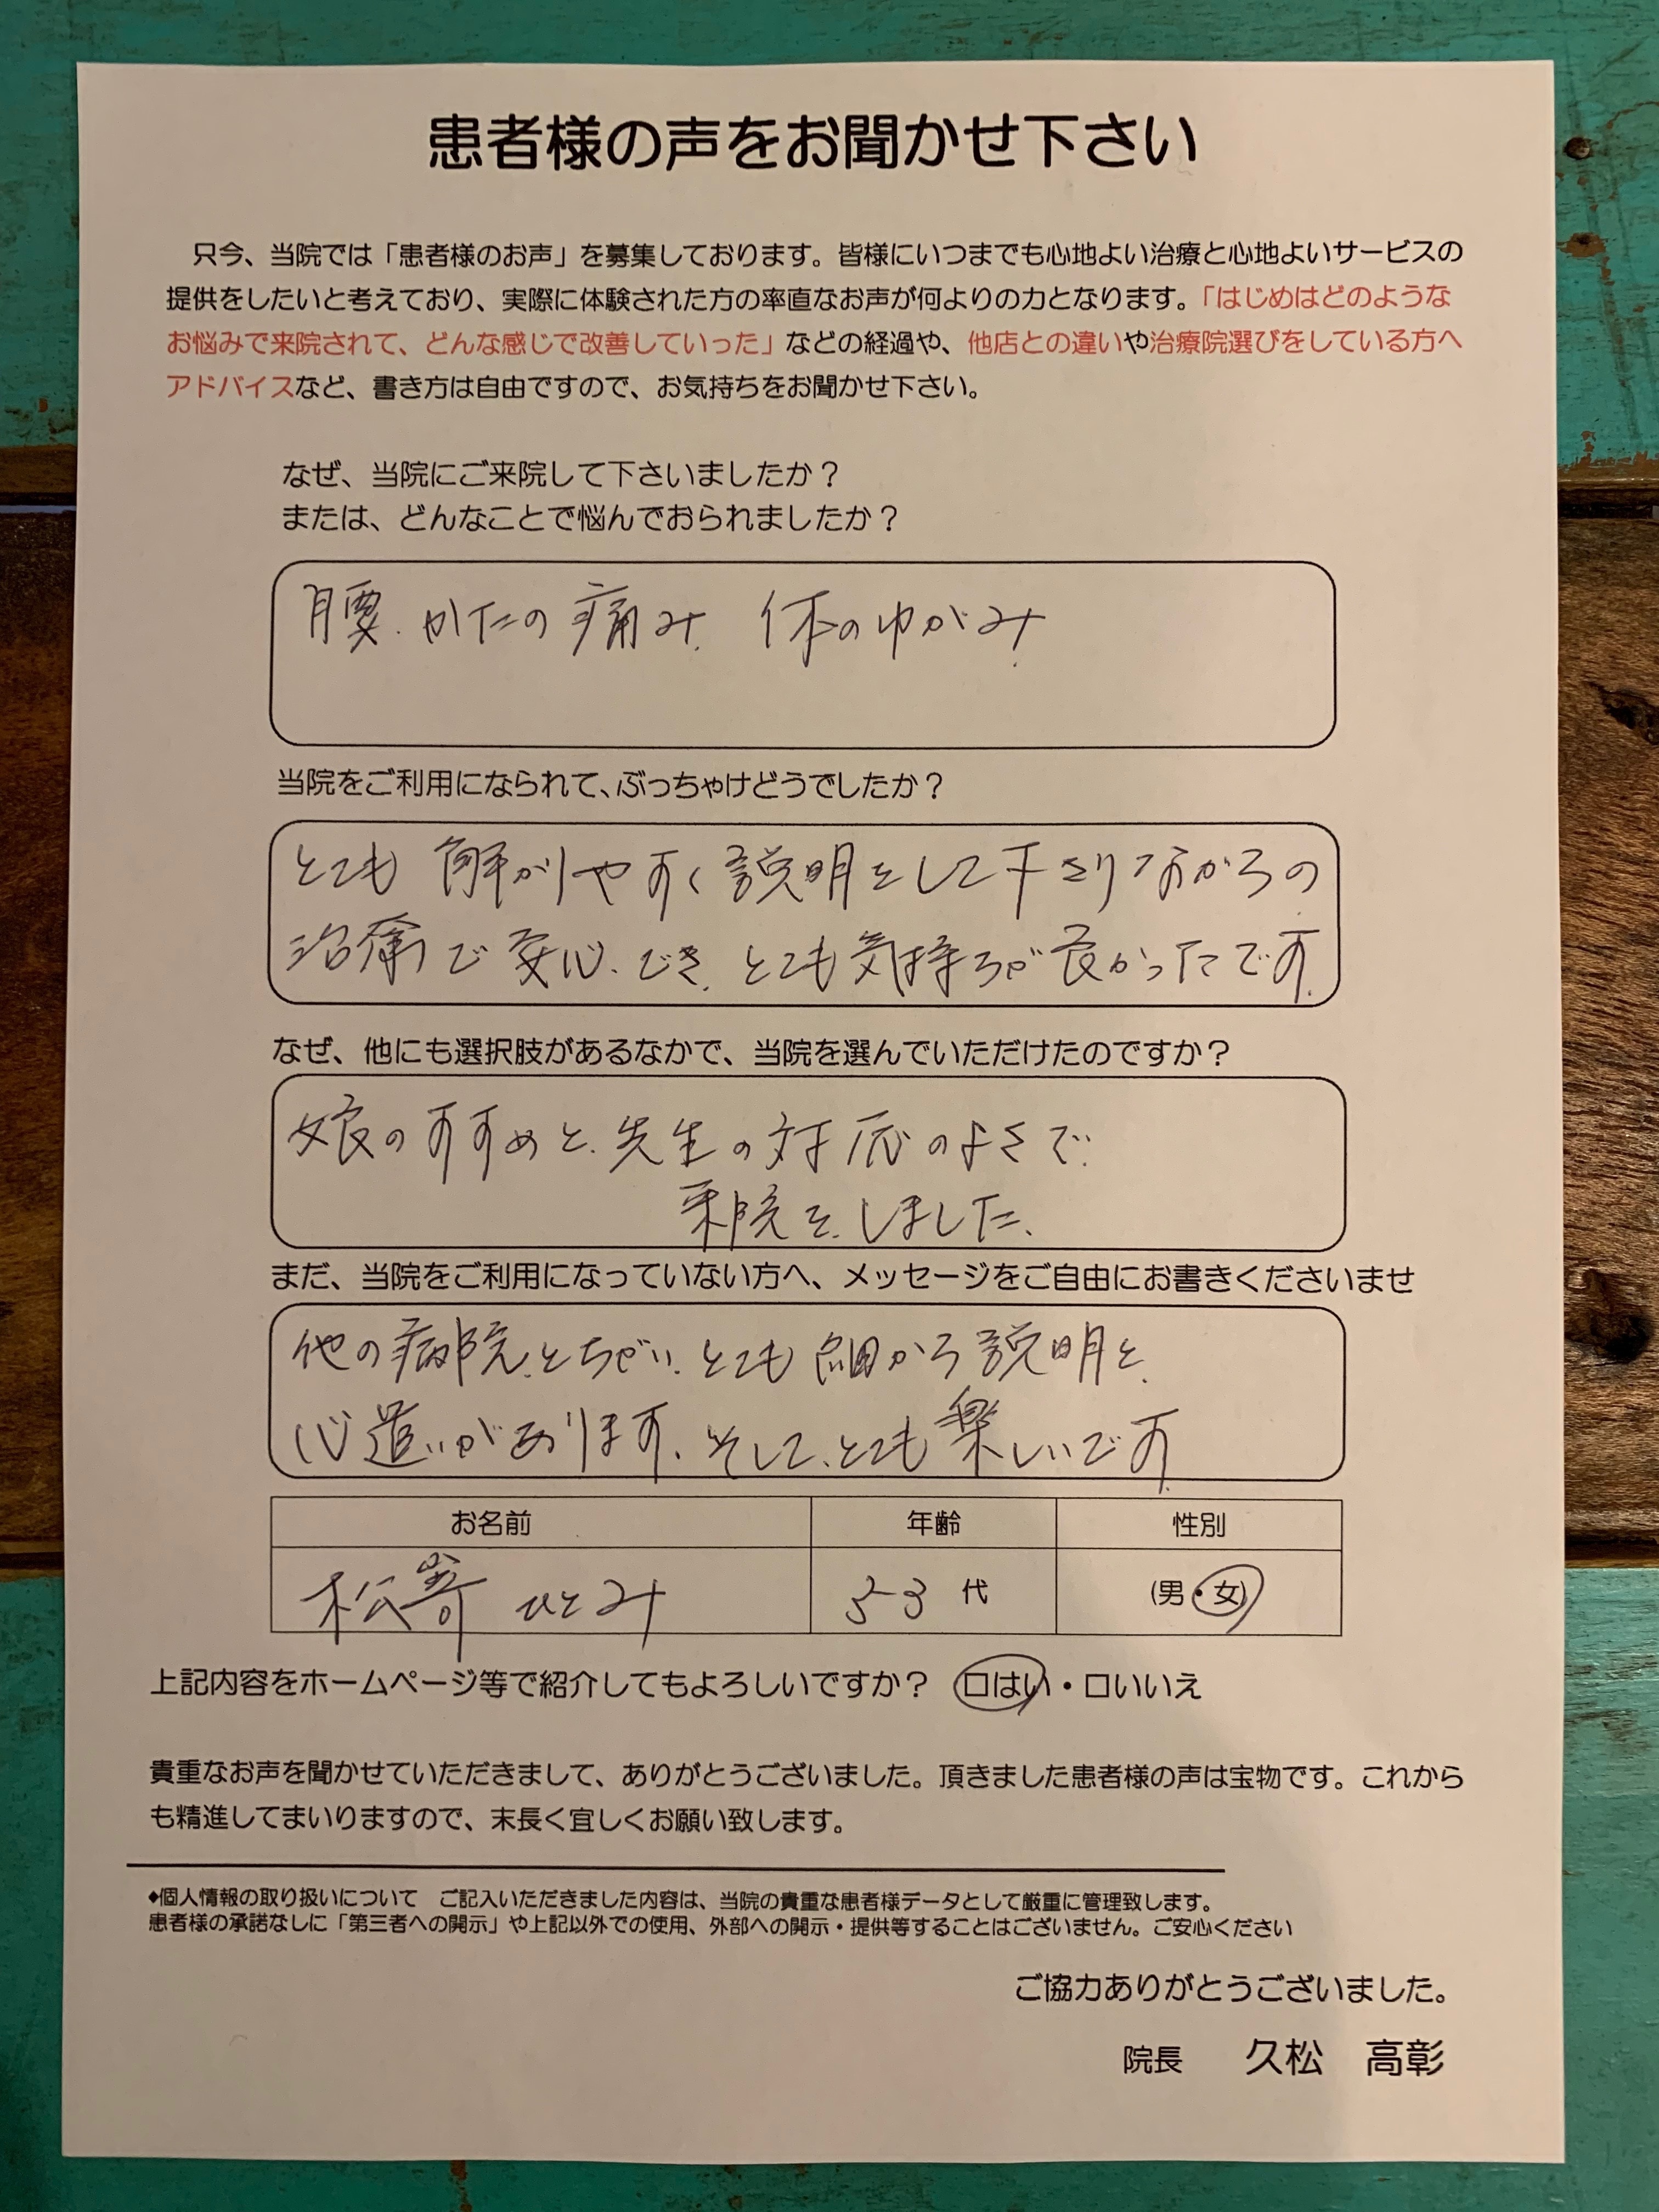 患者様の声をお聞かせ下さい
只今、当院では「患者様のお声」を募集しております。皆様にいつまでも心地よい治療と心地よいサービスの
提供をしたいと考えており、実際に体験された方の率直なお声が何よりの力となります。「はじめはどのような
お悩みで来院されて、どんな感じで改善していった」などの経過や、他店との違いや治療院選びをしている方へ
アドバイスなど、書き方は自由ですので、お気持ちをお聞かせ下さい。
なぜ、当院にご来院して下さいましたか？
または、どんなことで悩んでおられましたか？
腰、かたの痛み、体のゆがみ
当院をご利用になられて、ぶっちゃけどうでしたか？
とても解がりやすく説明をして下さりながらの
治療で安心でき、とても気持ちが良かったです。
なぜ、他にも選択肢があるなかで、当院を選んでいただけたのですか？
娘のすすめと、先生の対応のよさで、
来院をしました、
まだ、当院をご利用になっていない方へ、メッセージをご自由にお書きくださいませ
他の病院とちがい、とても細かろ説明と、
心遣いがあります、そして、とても楽しいです
お名前 年齢 性別
松嵜 ひとみ 53 代 (男・女)
上記内容をホームページ等で紹介してもよろしいですか？ 口はい・口いいえ
貴重なお声を聞かせていただきまして、ありがとうございました。頂きました患者様の声は宝物です。これから
も精進してまいりますので、末長く宜しくお願い致します。
◆個人情報の取り扱いについて ご記入いただきました内容は、当院の貴重な患者様データとして厳重に管理致します。
患者様の承諾なしに「第三者への開示」や上記以外での使用、外部への開示・提供等することはございません。ご安心ください
ご協力ありがとうございました。
院長 久松 高彰